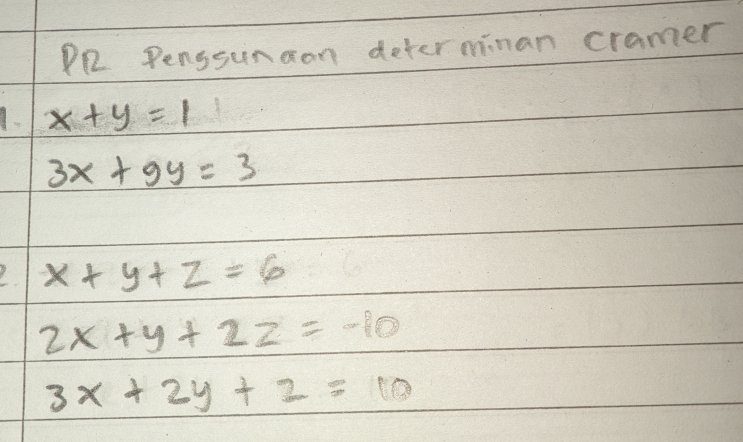 PR Penggunaan determinan cramer
1. x + y = 1
3x + 9y = 3
2. x + y + z = 6
2x + y + 2z = -10
3x + 2y + z = 10